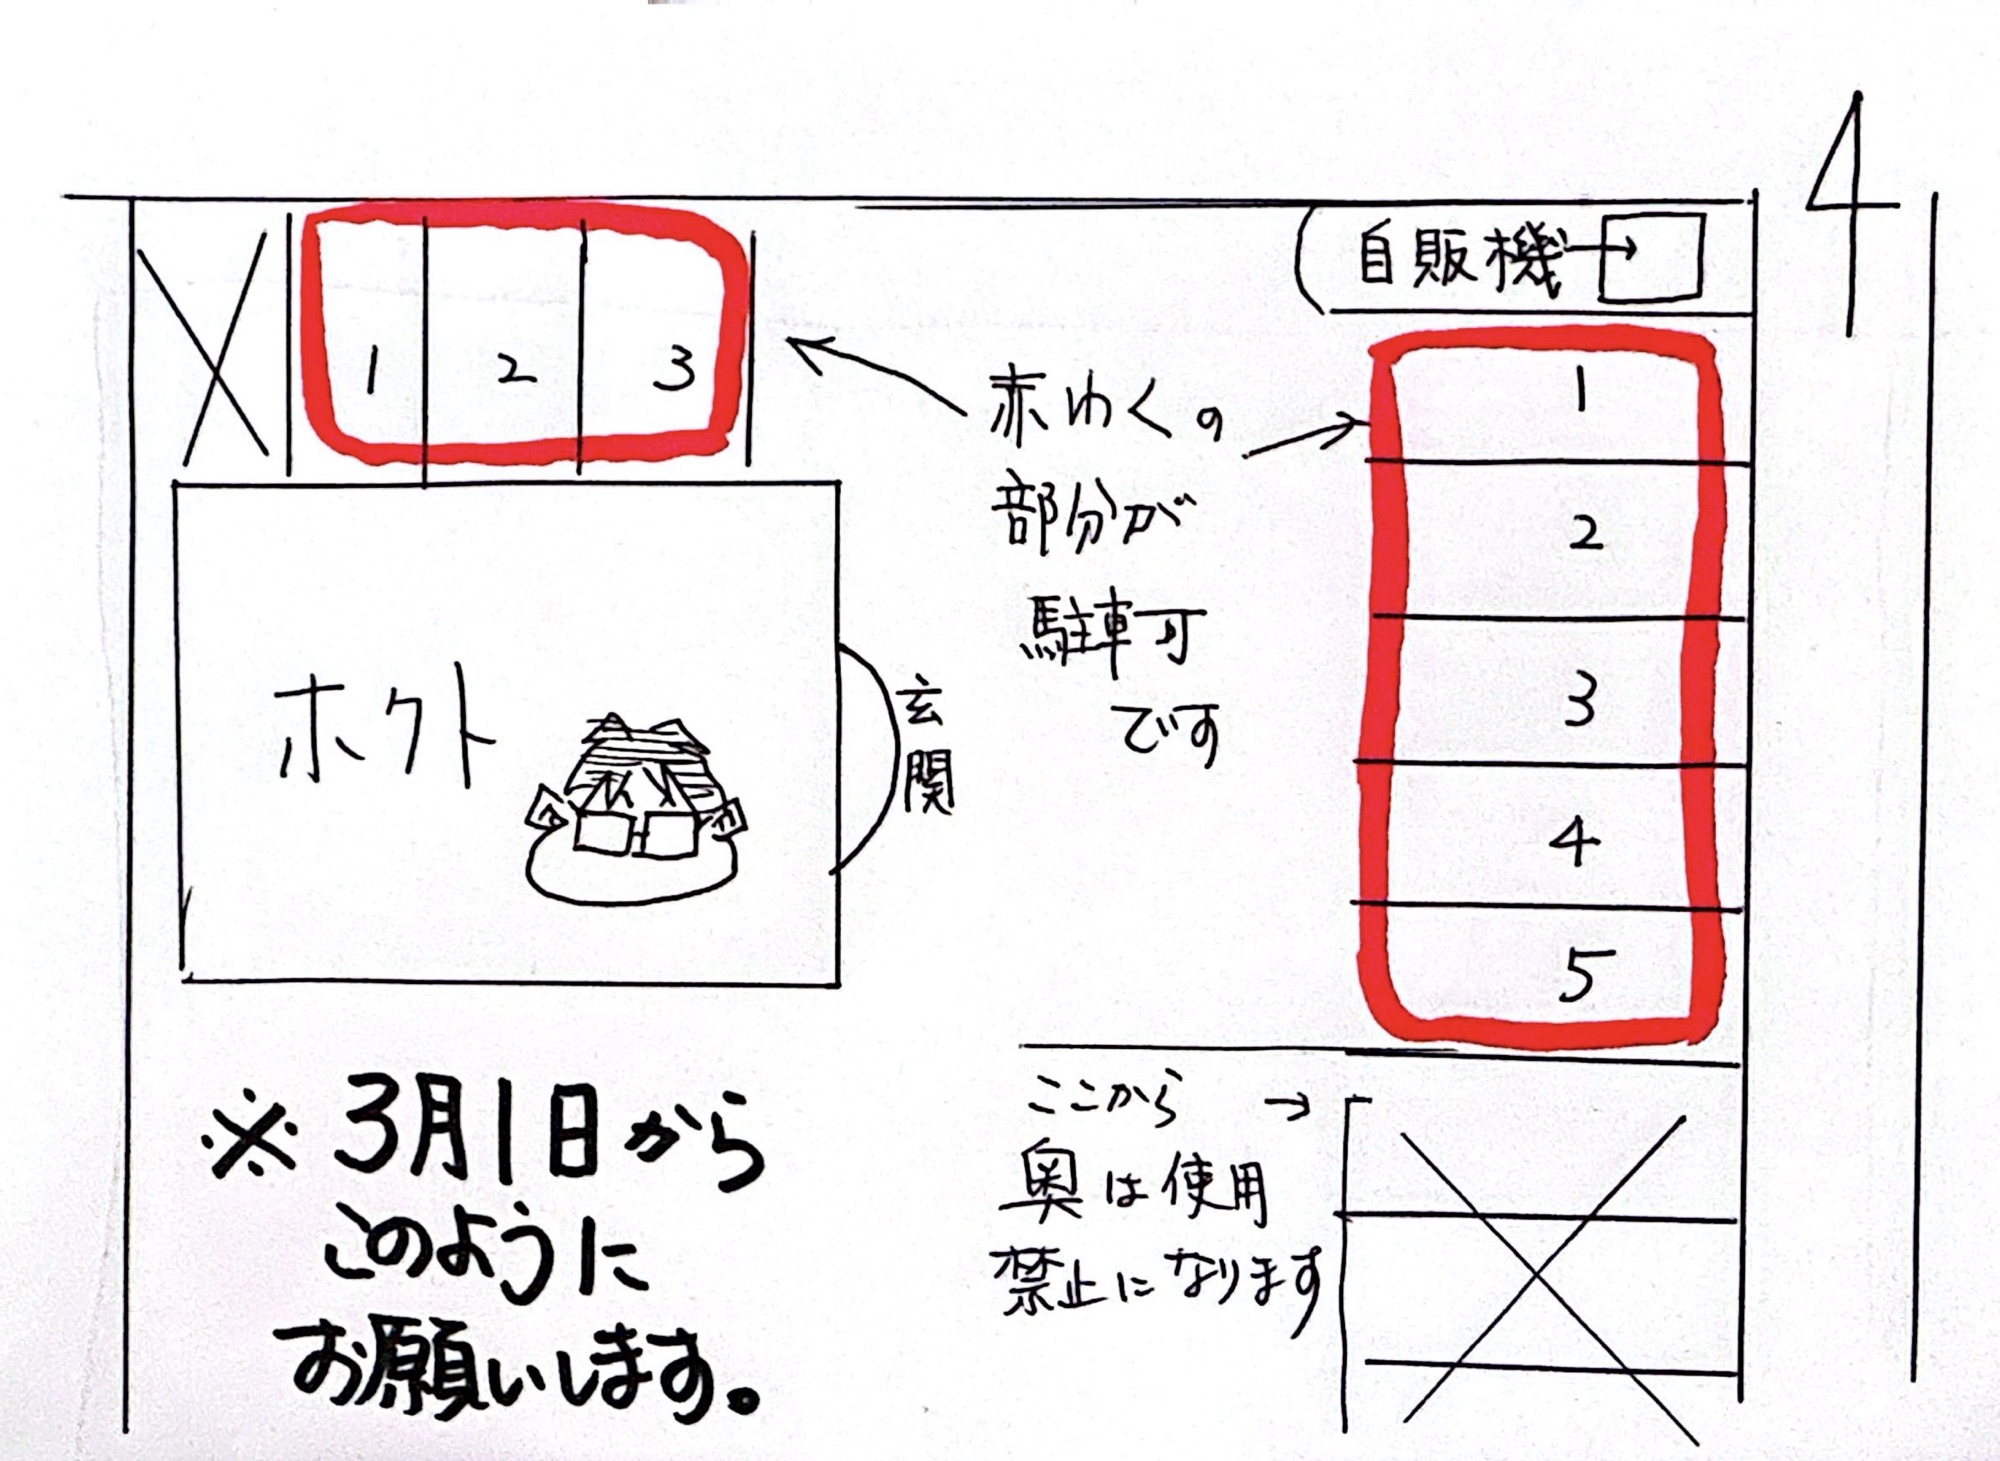 自販機
1 2 3
赤わくの
部分が
駐車可
です
1
2
3
4
5
ホクト
玄関
ここから
奥は使用
禁止になります
※3月1日から
このように
お願いします。